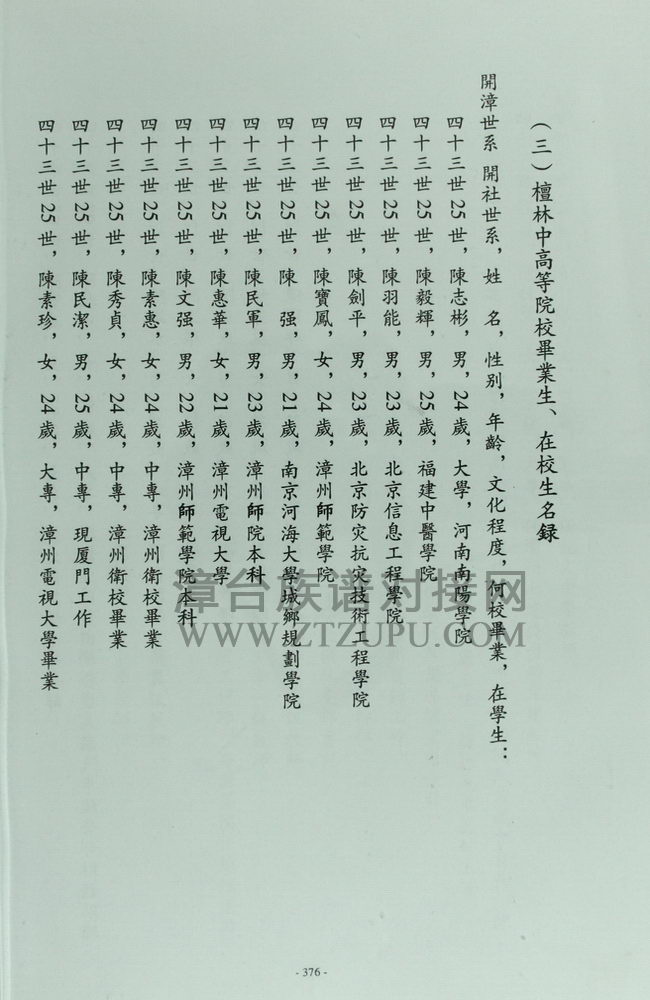 （三）檀林中高等院校畢業生、在校生名録
開漳世系 開社世系，姓 名，性别，年齡，文化程度，何校畢業，在學生：
四十三世 25 世，陳志彬，男，24 歲，大學，河南南陽學院
四十三世 25 世，陳毅輝，男，25 歲，福建中醫學院
四十三世 25 世，陳羽能，男，23 歲，北京信息工程學院
四十三世 25 世，陳劍平，男，23 歲，北京防灾抗灾技術工程學院
四十三世 25 世，陳寶鳳，女，24 歲，漳州師範學院
四十三世 25 世，陳 强，男，21 歲，南京河海大學城鄉規劃學院
四十三世 25 世，陳民軍，男，23 歲，漳州師院本科
四十三世 25 世，陳惠華，女，21 歲，漳州電視大學
四十三世 25 世，陳文强，男，22 歲，漳州師範學院本科
四十三世 25 世，陳素惠，女，24 歲，中專，漳州衛校畢業
四十三世 25 世，陳秀貞，女，24 歲，中專，漳州衛校畢業
四十三世 25 世，陳民潔，男，25 歲，中專，現厦門工作
四十三世 25 世，陳素珍，女，24 歲，大專，漳州電視大學畢業
漳台族谱对接网
WWW.ZTZUPU.COM
- 376 -